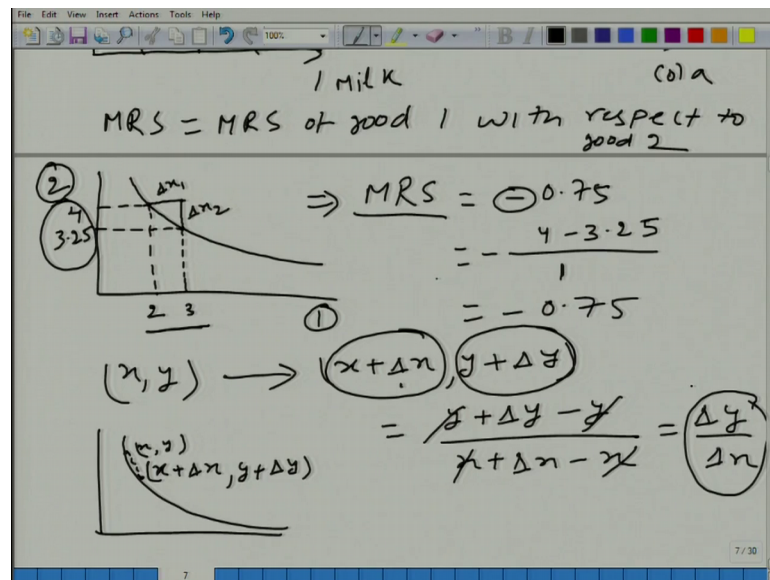 File Edit View Insert Actions Tools Help
100%
B I
1 Milk
Cola
MRS = MRS of good 1 with respect to
good 2
2
4
3.25
Δx1
Δx2
2 3
1
⇒ MRS = - 0.75
= - 4 - 3.25
1
= - 0.75
(x, y) ⟶ (x+Δx, y+Δy)
= y+Δy-y / x+Δx-x = Δy / Δx
(x, y)
(x+Δx, y+Δy)
7 / 30
7